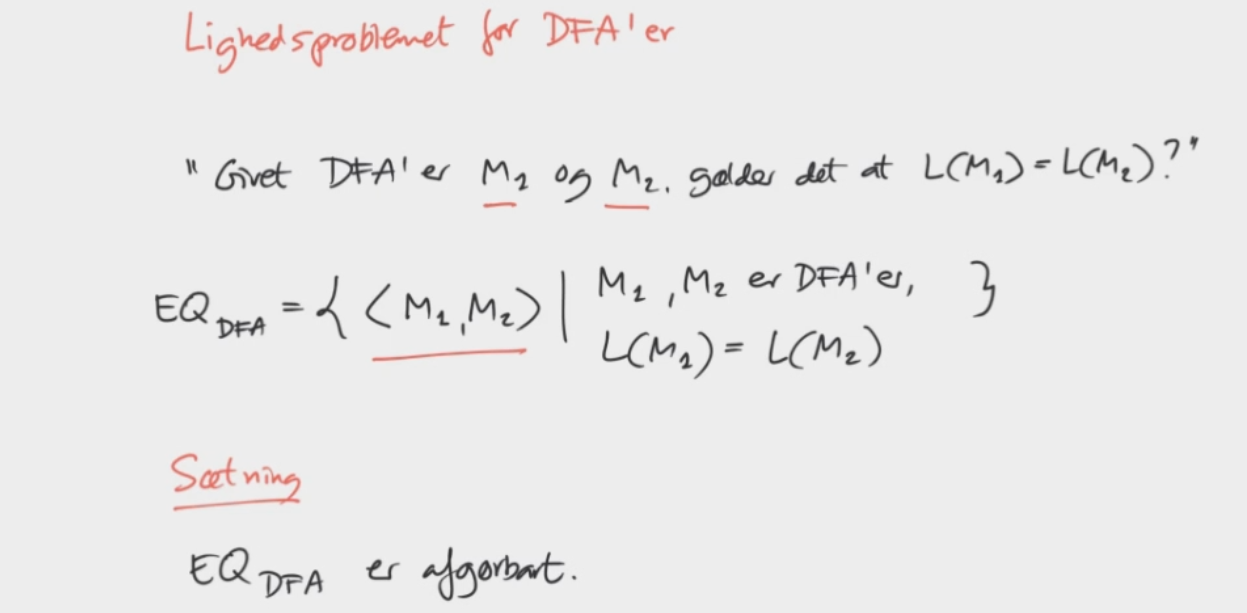 Lighedsproblemet for DFA'er
"Givet DFA'er M₁ og M₂, gælder det at L(M₁) = L(M₂)?"
EQ_DFA = { ⟨M₁, M₂⟩ | M₁, M₂ er DFA'er, }
L(M₁) = L(M₂)
Sætning
EQ_DFA er afgørbart.